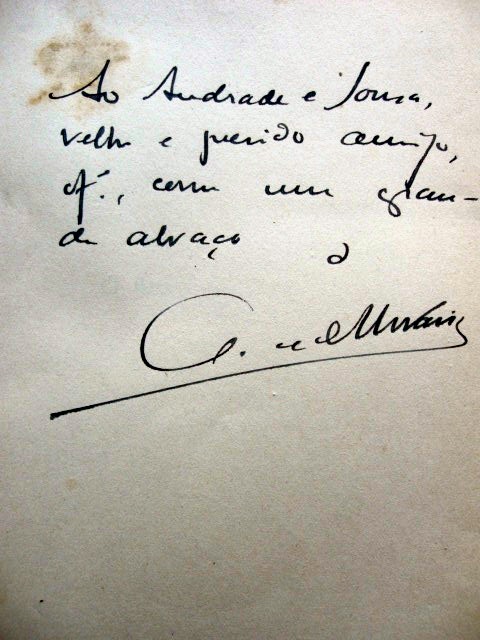 Ao Andrade e Sousa,
velho e querido amigo,
of., com um gran-
de abraço
o